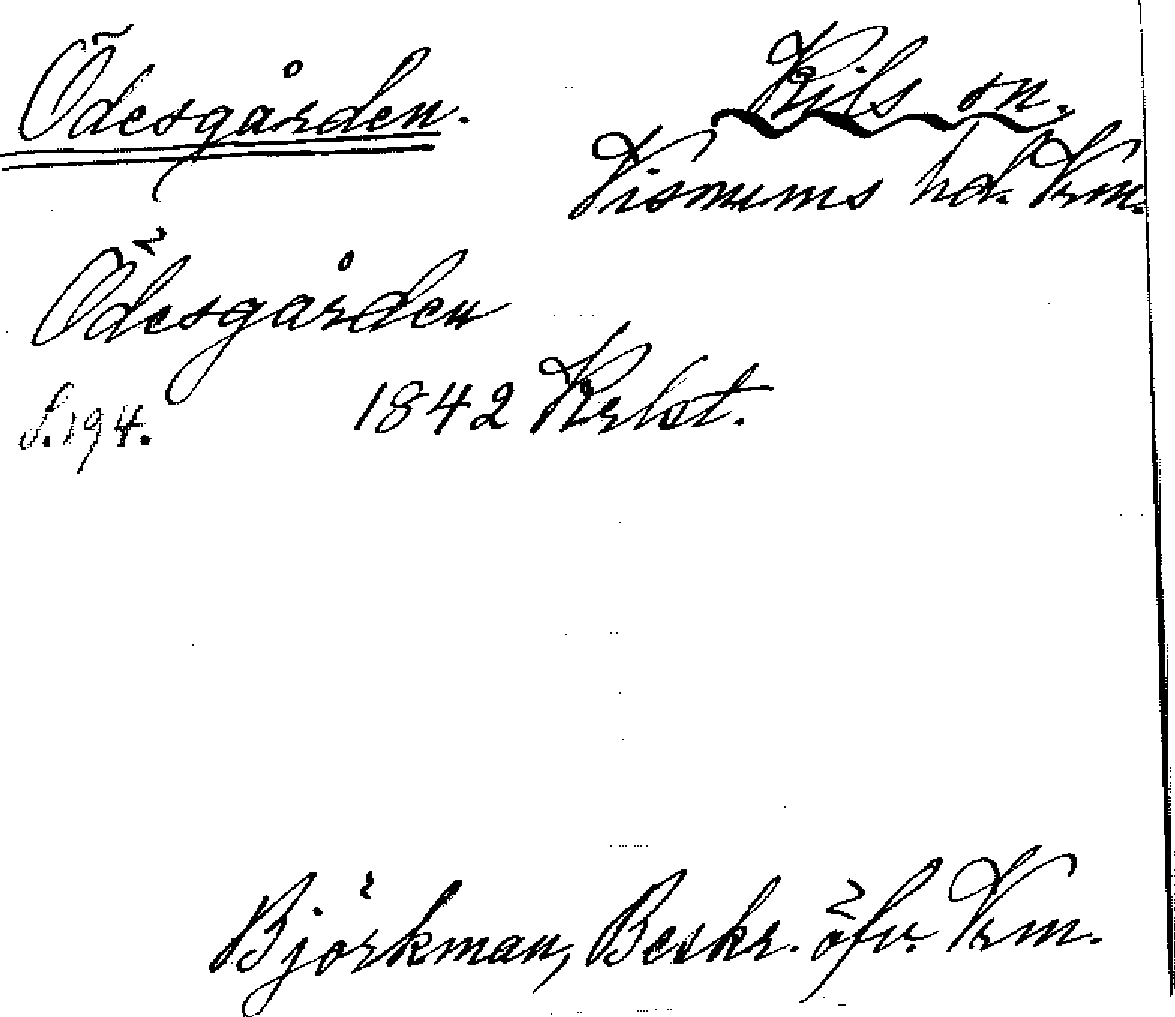 Ödesgården.
Kils sn.
Visnums hd. Vrm.
Ödesgården
S. 194.
1842 Krlst.
Björkman, Beskr. öfv. Vrm.